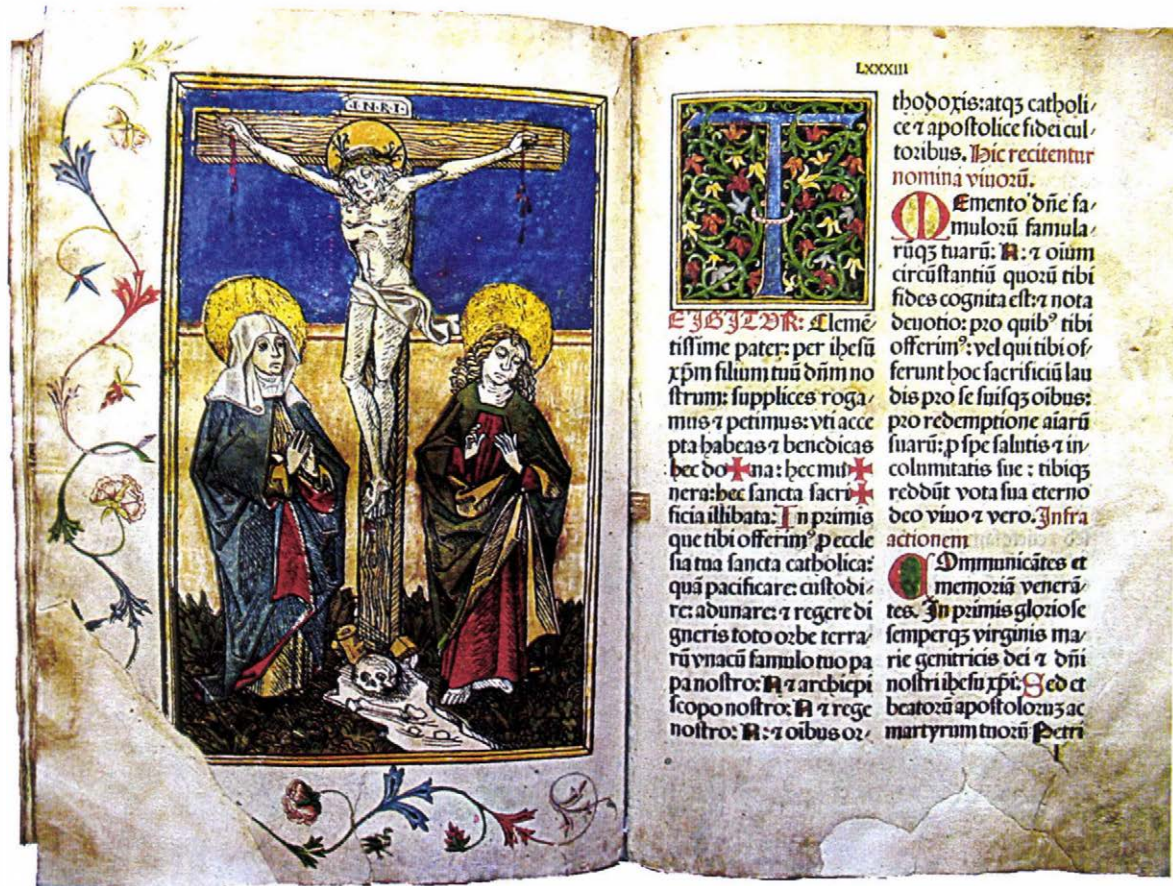 ·I·N·R·I·
LXXXIII
T
E IGITVR: Clemē/
tissime pater: per ihesū
xp̄m filium tuū dn̄m no
strum: supplices roga/
mus ⁊ petimus: vti acce
pta habeas ⁊ benedicas
hec do✠na: hec mu✠
nera: hec sancta sacri✠
ficia illibata: In primis
que tibi offerimꝰ ꝓ eccle
sia tua sancta catholica:
quā pacificare: custodi/
re: adunare: ⁊ regere di
gneris toto orbe terra/
rū vnacū famulo tuo pa
pa nostro: N ⁊ archiepi
scopo nostro: N ⁊ rege
nostro: N: ⁊ oibus or-
thodoxis: atqꝫ catholi/
ce ⁊ apostolice fidei cul-
toribus. Hic recitentur
nomina viuorū.
MEmento dn̄e fa/
mulorū famula/
rūqꝫ tuarū: N: ⁊ oium
circūstantiū quorū tibi
fides cognita est: ⁊ nota
deuotio: pro quibꝰ tibi
offerimꝰ: vel qui tibi of/
ferunt hoc sacrificiū lau
dis pro se suisqꝫ oibus:
pro redemptione aiarū
suarū: ꝓ spe salutis ⁊ in
columitatis sue: tibiqꝫ
reddūt vota sua eterno
deo viuo ⁊ vero. Infra
actionem
COmmunicātes et
memoriā venerā/
tes. In primis gloriose
semperqꝫ virginis ma/
rie genitricis dei ⁊ dn̄i
nostri ihesu xp̄i: Sed et
beatorū apostoloruꝫ ac
martyrum tuorū Petri